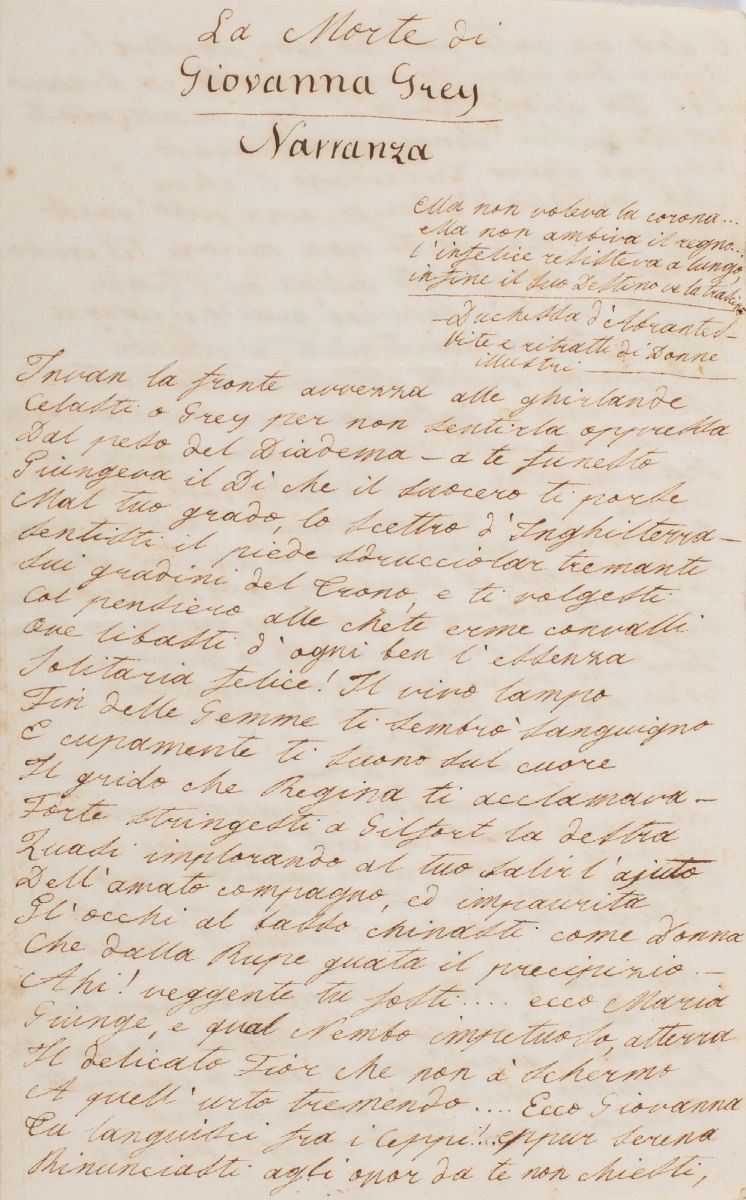 La Morte di
Giovanna Grey
Narranza
Ella non voleva la corona...
Ella non ambiva il regno...
l'infelice resisteva a lungo,
infine il suo Destino ve la trascinò
- Duchessa d'Abrantes -
vite e ritratti di Donne
illustri
Invan la fronte avvezza alle ghirlande
Celasti o Grey per non sentirla oppressa
Dal peso del Diadema - a te funesto
Giungeva il Dì che il suocero ti porse
Mal tuo grado, lo scettro d'Inghilterra -
Sentisti il piede sdrucciolar tremanti
Sui gradini del Trono, e ti volgesti
Col pensiero alle chéte erme convalli
Ove libasti d'ogni ben l'essenza
Solitaria felice! Il vivo lampo
Fin delle Gemme ti sembrò sanguigno
E cupamente ti suonò sul cuore
Il grido che Regina ti acclamava -
Forte stringesti a Gilfort la destra
Quasi implorando al tuo salir l'ajuto
Dell'amato compagno, ed impaurita
Gl'occhi al basso chinasti come Donna
Che dalla Rupe guata il precipizio. -
Ahi! veggente tu fosti.... ecco Maria
Giunge, e qual Nembo impetuoso, atterra
Il delicato Fior che non à schermo
A quell'urto tremendo.... Ecco Giovanna
Tu languisci fra i Ceppi!... eppur serena
Rinunciasti agli onor da te non chiesti,